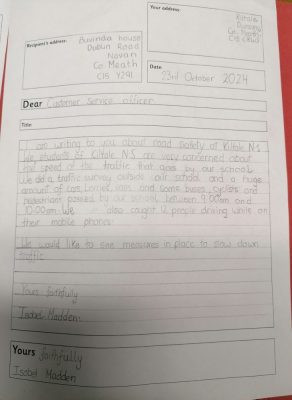 Your address:
Kiltale
Dunsany
Co. Meath
Recipient's address:
Buvinda house
Dublin Road
Navan
Co Meath
C15 Y291
Date
23rd October 2024
Dear Customer Service officer
Title
I am writing to you about road safety of Kiltale N.S
We students of Kiltale N.S are very concerned about
the speed of the traffic that goes by our school.
We did a traffic survey outside our school and a huge
amount of cars, lorries, vans and some buses, cyclists and
pedestrians passed by our school between 9:00am and
10:00am. We also caught 12 people driving while on
their mobile phones.
We would like to see measures in place to slow down
traffic
Yours faithfully
Isabel Madden
Yours faithfully
Isabel Madden